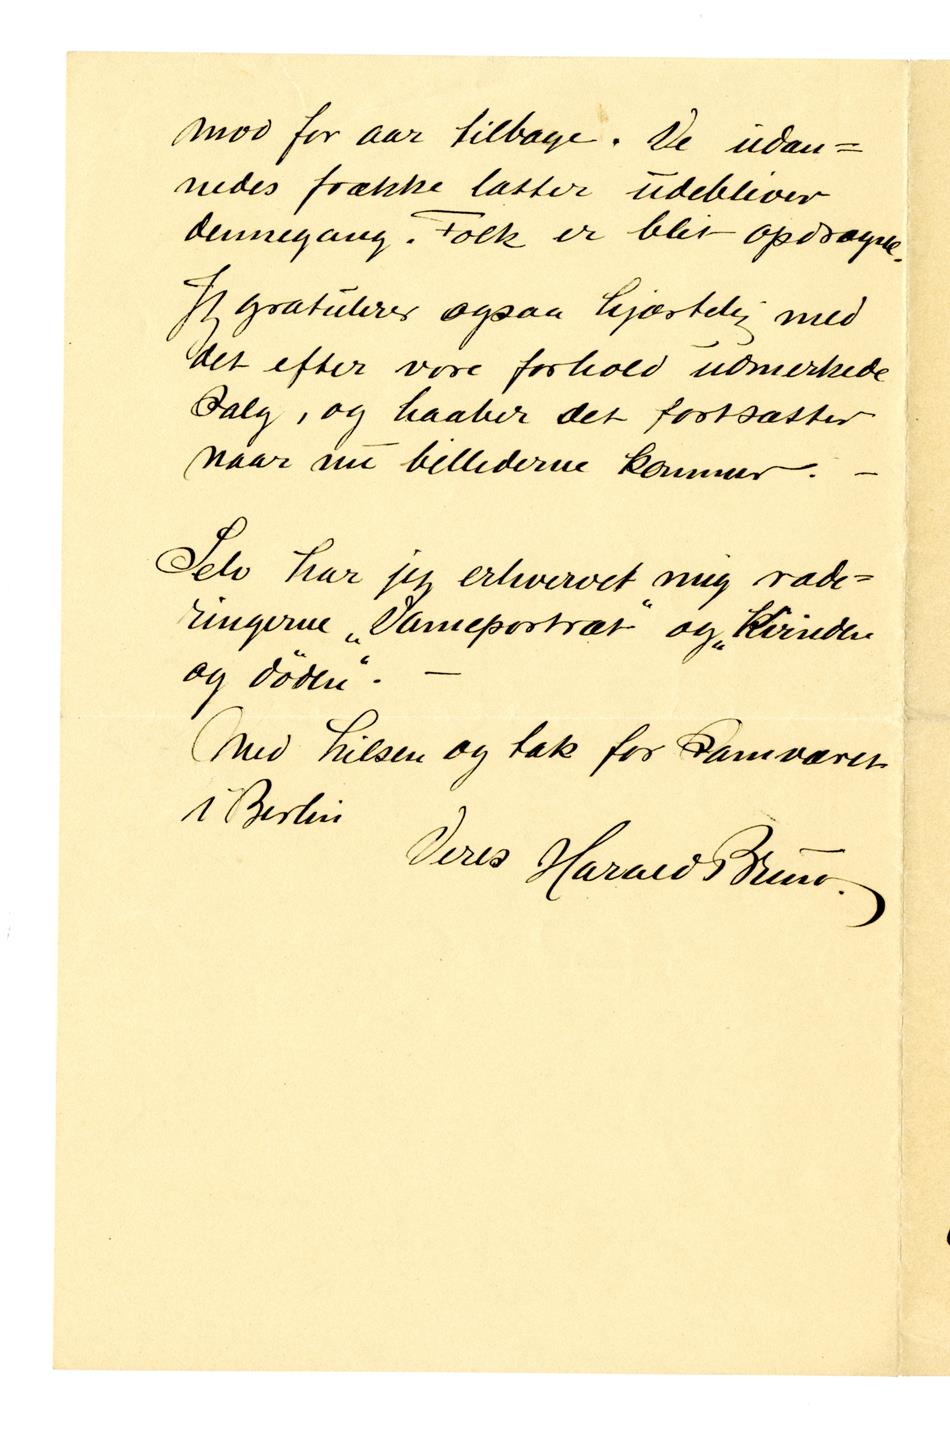 mod for aar tilbage. De udan=
nedes frække latter udebliver
dennegang. Folk er blit opdragne.
Jeg gratulerer ogsaa hjærtelig med
det efter vore forhold udmerkede
Salg, og haaber det fortsætter
naar nu billederne kommer. —
Selv har jeg erhvervet mig rade=
ringerne „Dameportræt“ og „Kvinden
og döden“. —
Med hilsen og tak for Samværet
i Berlin
Deres Harald Bruno.